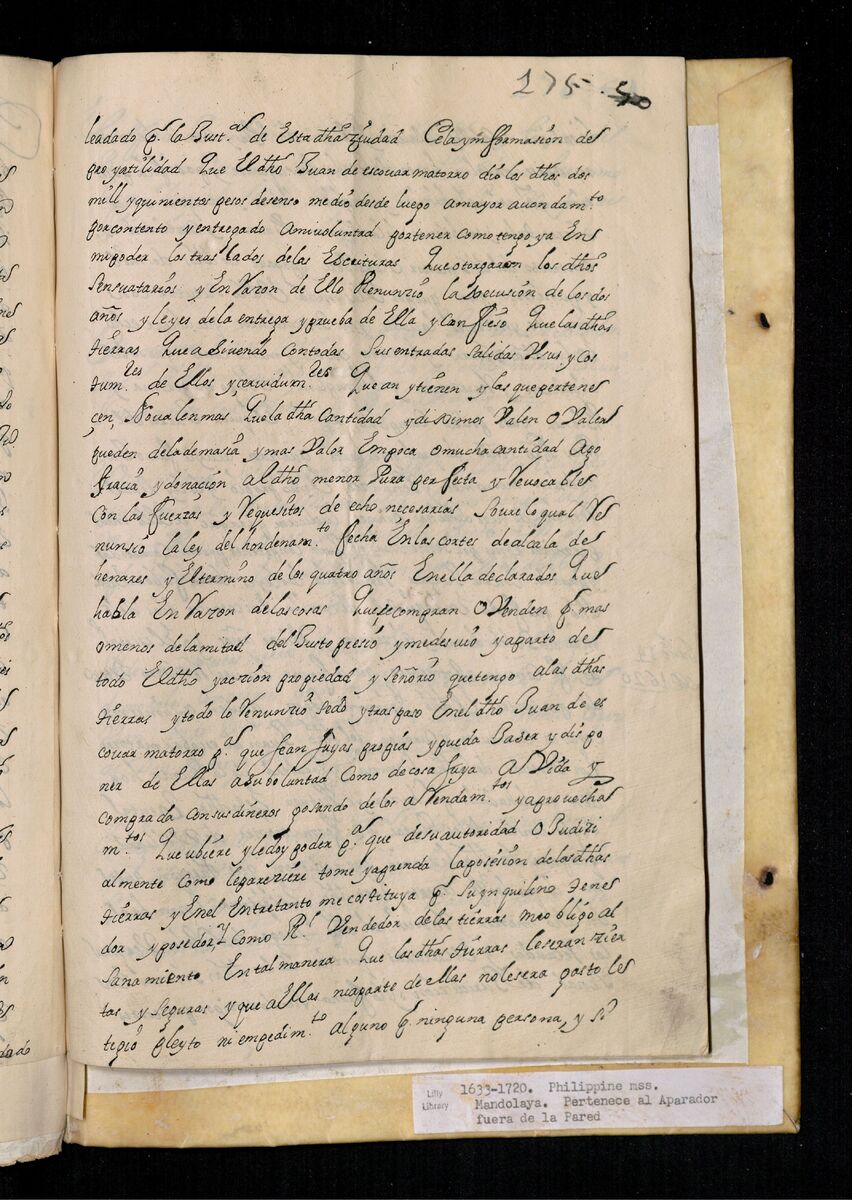 175 50
leadado p.r la Just.a de Esta dha ziudad Cela ynformasion de
pro yutilidad Que El dho Juan de escouar matorro dio los dhos dos
mill yquinientos pesos desenso medio desde luego amayor auondam.to
porcontento y entregado amivoluntad portener comotengo ya En
mipoder los traslados delas Escrituras Queotorgaron los dhos
sensuatarios y En Razon de Ello Renunzio la exsecusion de los dos
años y leyes dela entrega yprueba de Ella y confieso Que las dhas
tierras Que asi uendo contodas sus entradas salidas Usus y cos
tum.res de Ellos yçeruidum.res Que an ytienen y las quepertene
çen, No ualen mas Que la dha Cantidad ydisimos Valen O Valer
pueden delademasia ymas Valor Empoca omucha cantidad Ago
graçia ydonaçion al dho menor Pura perfecta y Yrevocable
con las fuerzas y Requesitos de echo necesarias sobre lo qual Re
nunsio laley del hordenam.to fecha En las cortes de alcala de
henares y Eltermino de los quatro años Enella declarados Que
habla En Razon delascosas Que se compran O Venden p.r mas
omenos de la mitad del Justo presio y medesisto yaparto de
todo El dho yaczion propiedad y señorio quetengo alas dhas
tierras ytodo lo Renunzio sedo ytraspaso Enel dho Juan de es
couar matorro p.a que sean suyas propias ypueda Baser y dispo
ner de Ellas asu boluntad como decosa suya auida y
comprada consusdineros gosando de los aRendam.tos yaprouecha
m.tos Que ubiere y ledoy poder p.a que desuautoridad O Judizi
almente como lepareziere tome yaprenda laposesion delas dhas
tierras y Enel Entretanto mecostituyo p.r su ynquilino tene
dor yposedor y como R.l Vendedor de las tierras meobligo al
sanamiento En tal manera Que las dhas tierras leseran zier
tas y seguras y que a Ellas niaparte de ellas nolesera pusto le
tigio pleyto ni empedim.to alguno p.r ninguna persona, y si
Lilly Library
1633-1720. Philippine mss.
Mandolaya. Pertenece al Aparador
fuera de la Pared